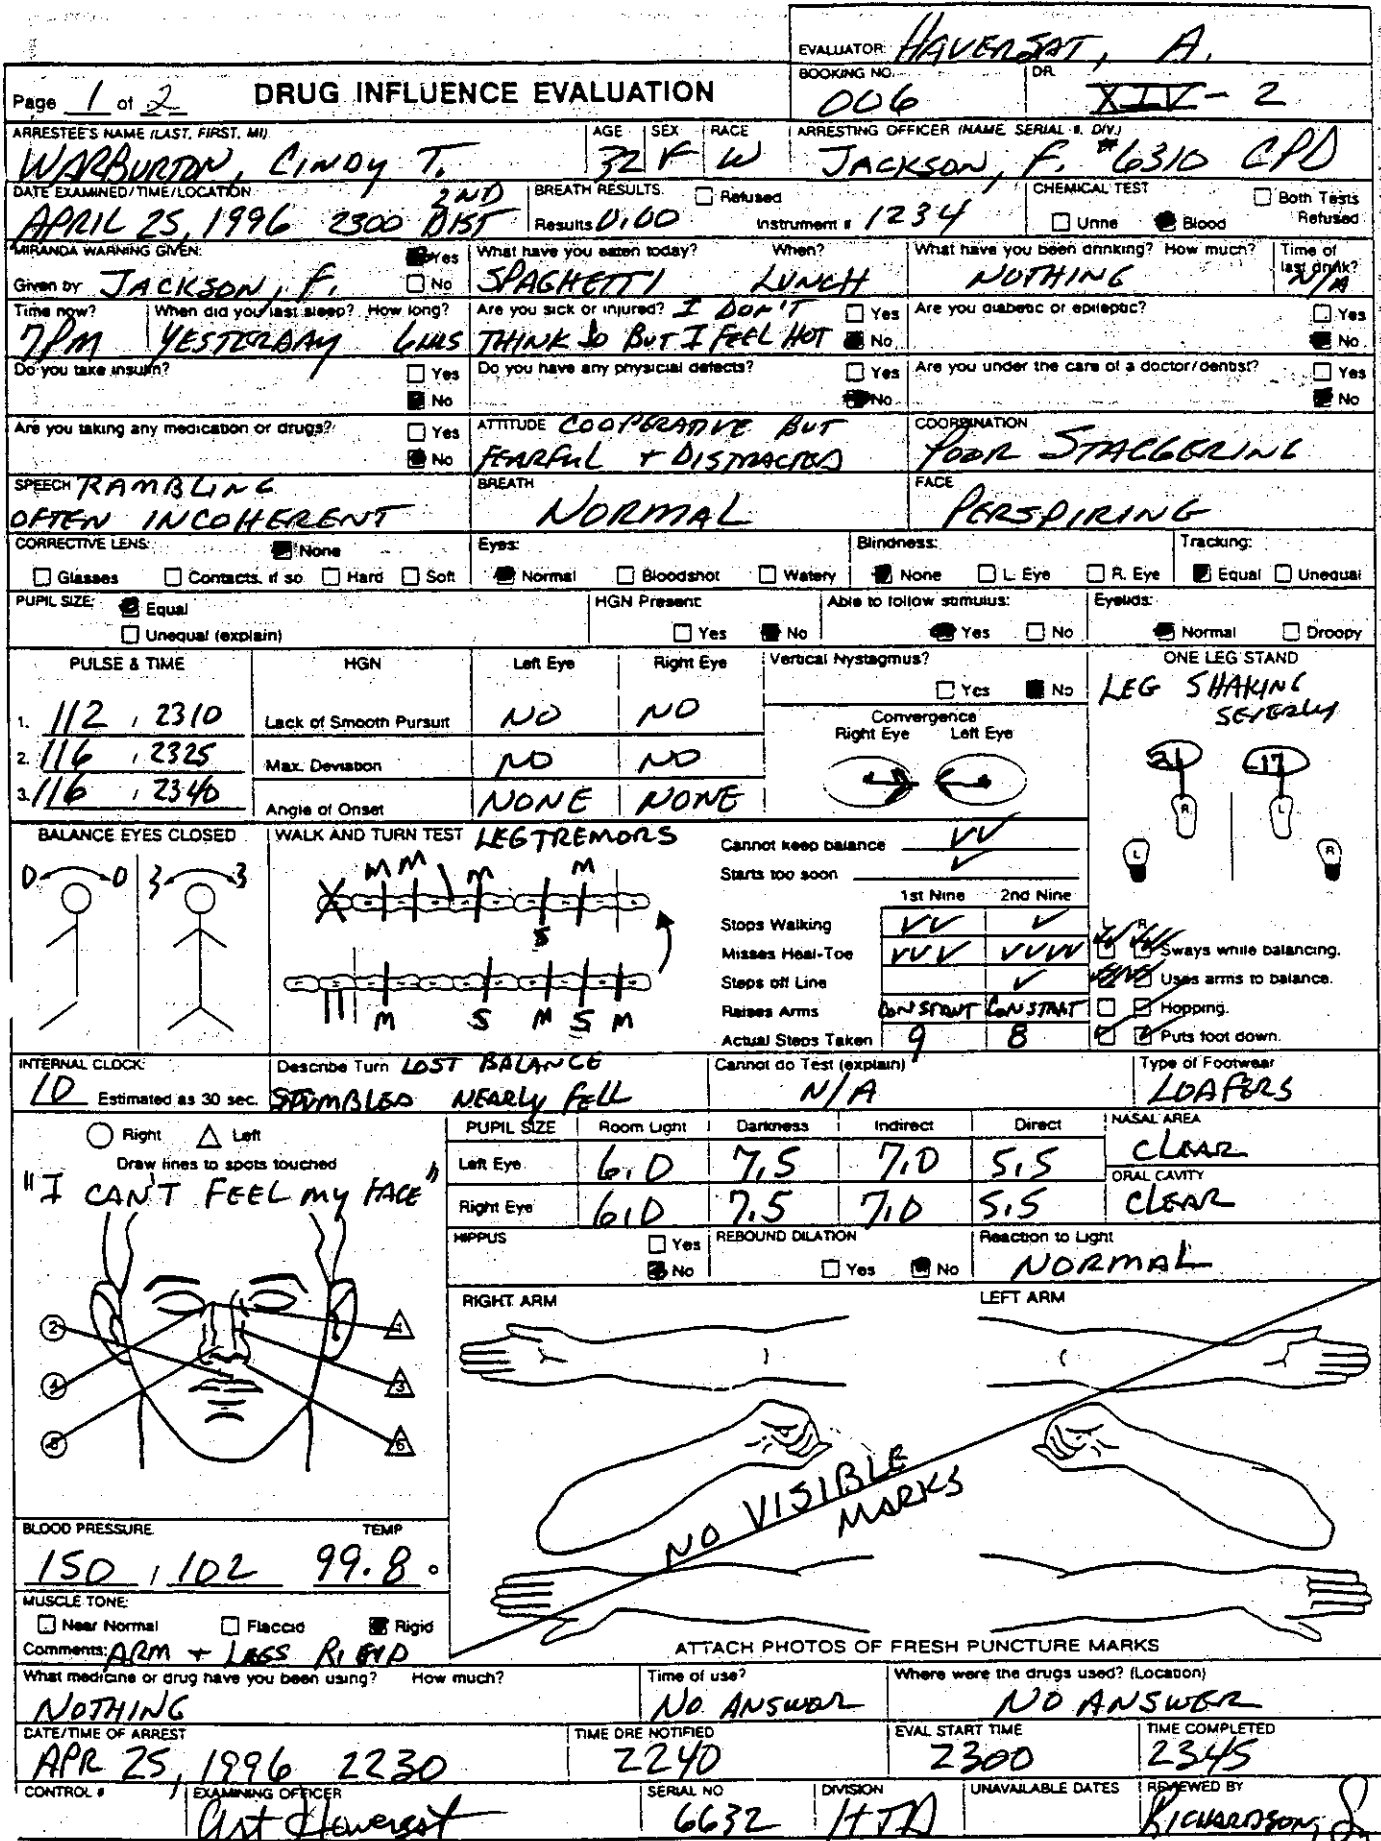 EVALUATOR: HAVERSAT, A.
Page 1 of 2 DRUG INFLUENCE EVALUATION
BOOKING NO. 006 DR. XIV - 2
ARRESTEE'S NAME (LAST, FIRST, MI) WARBURTON, CINDY T. AGE 32 SEX F RACE W ARRESTING OFFICER (NAME, SERIAL #, DIV.) JACKSON, F. #6310 CPD
DATE EXAMINED/TIME/LOCATION APRIL 25, 1996 2300 2ND DIST
BREATH RESULTS: Refused Results 0.00 Instrument # 1234
CHEMICAL TEST Urine Blood Both Tests Refused
MIRANDA WARNING GIVEN: Yes No Given by JACKSON, F.
What have you eaten today? When? SPAGHETTI LUNCH
What have you been drinking? How much? NOTHING
Time of last drink? N/A
Time now? 7PM
When did you last sleep? How long? YESTERDAY 6 HRS
Are you sick or injured? I DON'T THINK SO BUT I FEEL HOT Yes No
Are you diabetic or epileptic? Yes No
Do you take insulin? Yes No
Do you have any physicial defects? Yes No
Are you under the care of a doctor/dentist? Yes No
Are you taking any medication or drugs? Yes No
ATTITUDE COOPERATIVE BUT FEARFUL + DISTRACTED
COORDINATION POOR STAGGERING
SPEECH RAMBLING OFTEN INCOHERENT
BREATH NORMAL
FACE PERSPIRING
CORRECTIVE LENS: None Glasses Contacts, if so Hard Soft
Eyes: Normal Bloodshot Watery
Blindness: None L. Eye R. Eye
Tracking: Equal Unequal
PUPIL SIZE: Equal Unequal (explain)
HGN Present: Yes No
Able to follow stimulus: Yes No
Eyelids: Normal Droopy
PULSE & TIME
1. 112 , 2310
2. 116 , 2325
3. 116 , 2340
HGN Left Eye Right Eye
Lack of Smooth Pursuit NO NO
Max. Deviation NO NO
Angle of Onset NONE NONE
Vertical Nystagmus? Yes No
Convergence
Right Eye Left Eye
ONE LEG STAND
LEG SHAKING
SEVERLY
21 17
R L
L R
BALANCE EYES CLOSED
0 0 3 3
WALK AND TURN TEST LEG TREMORS
M M M M
S
M S M S M
Cannot keep balance
Starts too soon
1st Nine 2nd Nine
Stops Walking
Misses Heal-Toe
Steps off Line
Raises Arms CONSTANT CONSTANT
Actual Steps Taken 9 8
L R
Sways while balancing.
Uses arms to balance.
Hopping.
Puts foot down.
INTERNAL CLOCK: 10 Estimated as 30 sec.
Describe Turn LOST BALANCE STUMBLED NEARLY FELL
Cannot do Test (explain) N/A
Type of Footwear LOAFERS
Right Left
Draw lines to spots touched
"I CAN'T FEEL MY FACE"
2 1
4 3
6
PUPIL SIZE Room Light Darkness Indirect Direct
Left Eye 6.0 7.5 7.0 5.5
Right Eye 6.0 7.5 7.0 5.5
NASAL AREA CLEAR
ORAL CAVITY CLEAR
HIPPUS Yes No
REBOUND DILATION Yes No
Reaction to Light NORMAL
RIGHT ARM LEFT ARM
NO VISIBLE MARKS
ATTACH PHOTOS OF FRESH PUNCTURE MARKS
BLOOD PRESSURE 150 , 102 TEMP 99.8 °
MUSCLE TONE: Near Normal Flaccid Rigid
Comments: ARM + LEGS RIGID
What medicine or drug have you been using? How much? NOTHING
Time of use? NO ANSWER
Where were the drugs used? (Location) NO ANSWER
DATE/TIME OF ARREST APR 25, 1996 2230
TIME DRE NOTIFIED 2240
EVAL START TIME 2300
TIME COMPLETED 2345
CONTROL #
EXAMINING OFFICER Art Haversat
SERIAL NO 6632
DIVISION
UNAVAILABLE DATES
REVIEWED BY RICHARDSON,